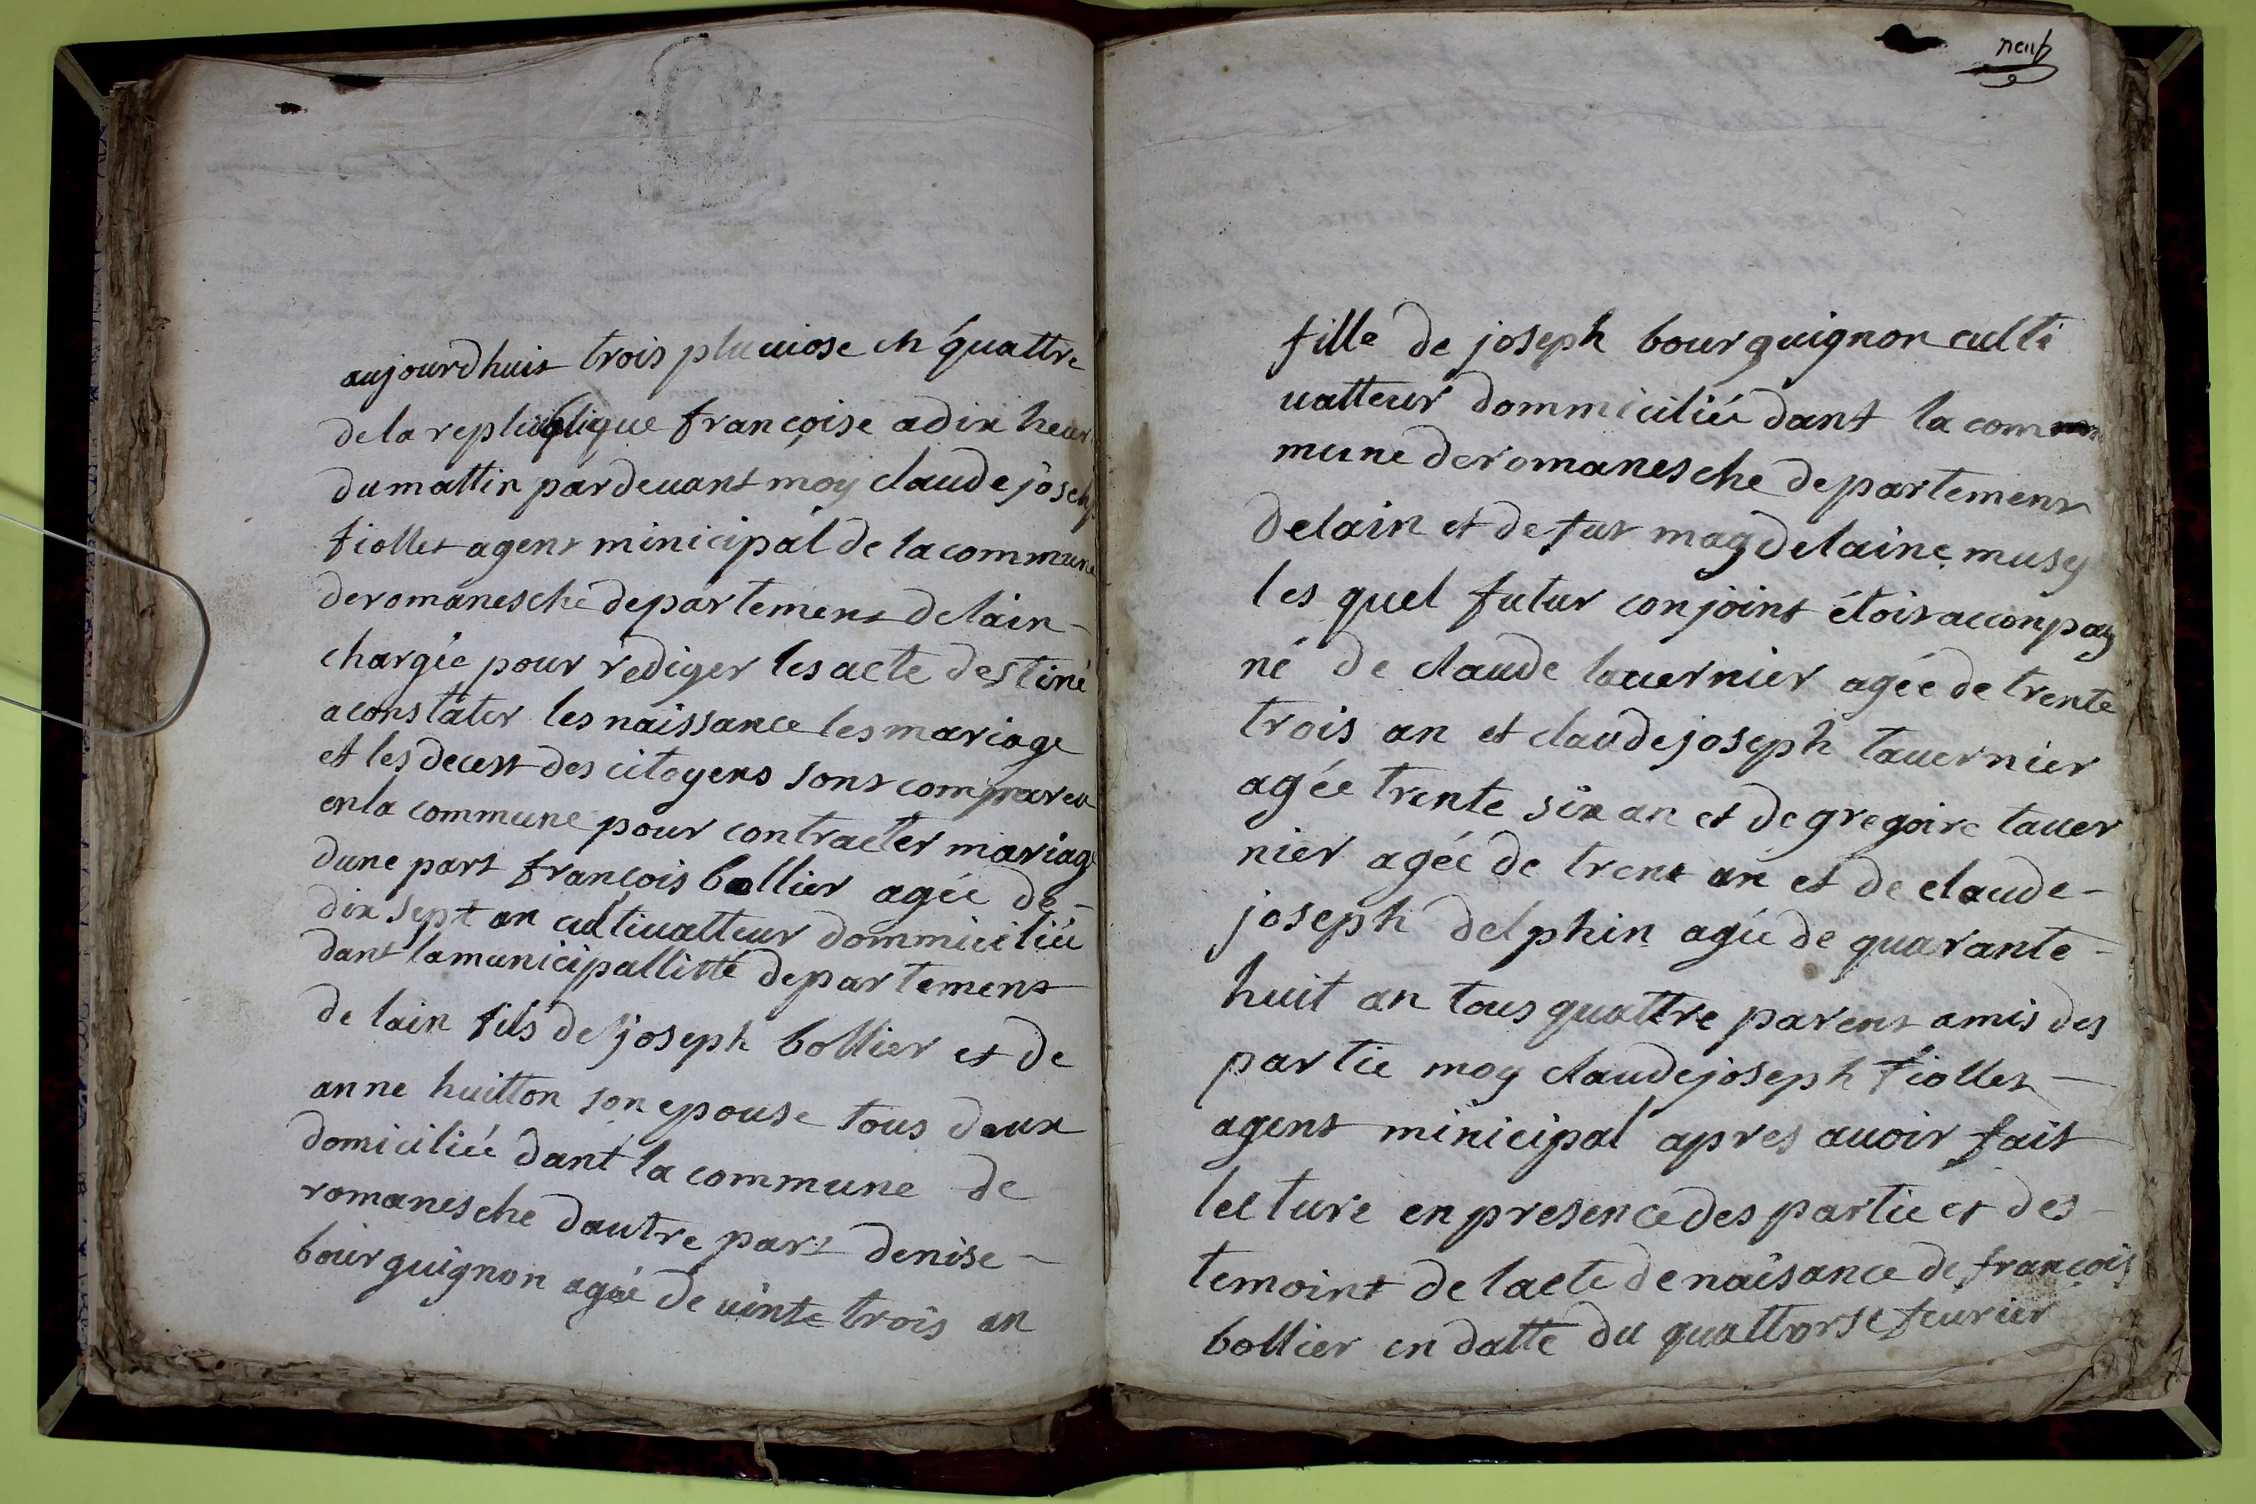 aujourdhuit trois pluuiose en quattre
dela republique françoise a dix heur
du mattin pardeuant moy claude joseph
fiollet agent minicipal de la commune
deromanesche departement delain
chargée pour rediger les acte destiné
a constater les naissance les mariage
et les decest des citoyens sont comparu
en la commune pour contracter mariage
dune part françois bollier agée de
dix sept an cultiuatteur dommiciliée
dant la municipallitté departement
de lain fils de joseph bollier et de
anne huitton son epouse tous deux
domiciliée dant la commune de
romanesche dautre part denise
bourguignon agée de uinte trois an
neuf
fille de joseph bourguignon culti
uatteur dommiciliée dant la com
mune deromanesche departement
delain et de fut magdelaine musy
les quel futur conjoint étoit acconpag
né de claude tauernier agée de trente
trois an et claudejoseph tauernier
agée trente six an et de gregoire tauer
nier agée de trent an et de claude
joseph delphin agée de quarante
huit an tous quattre parent amis des
partie moy claudejoseph fiollet
agent minicipal apres auoir fait
lecture en presence des partie et des
temoint de lacte de naisance de françois
bollier en datte du quattorse feurier